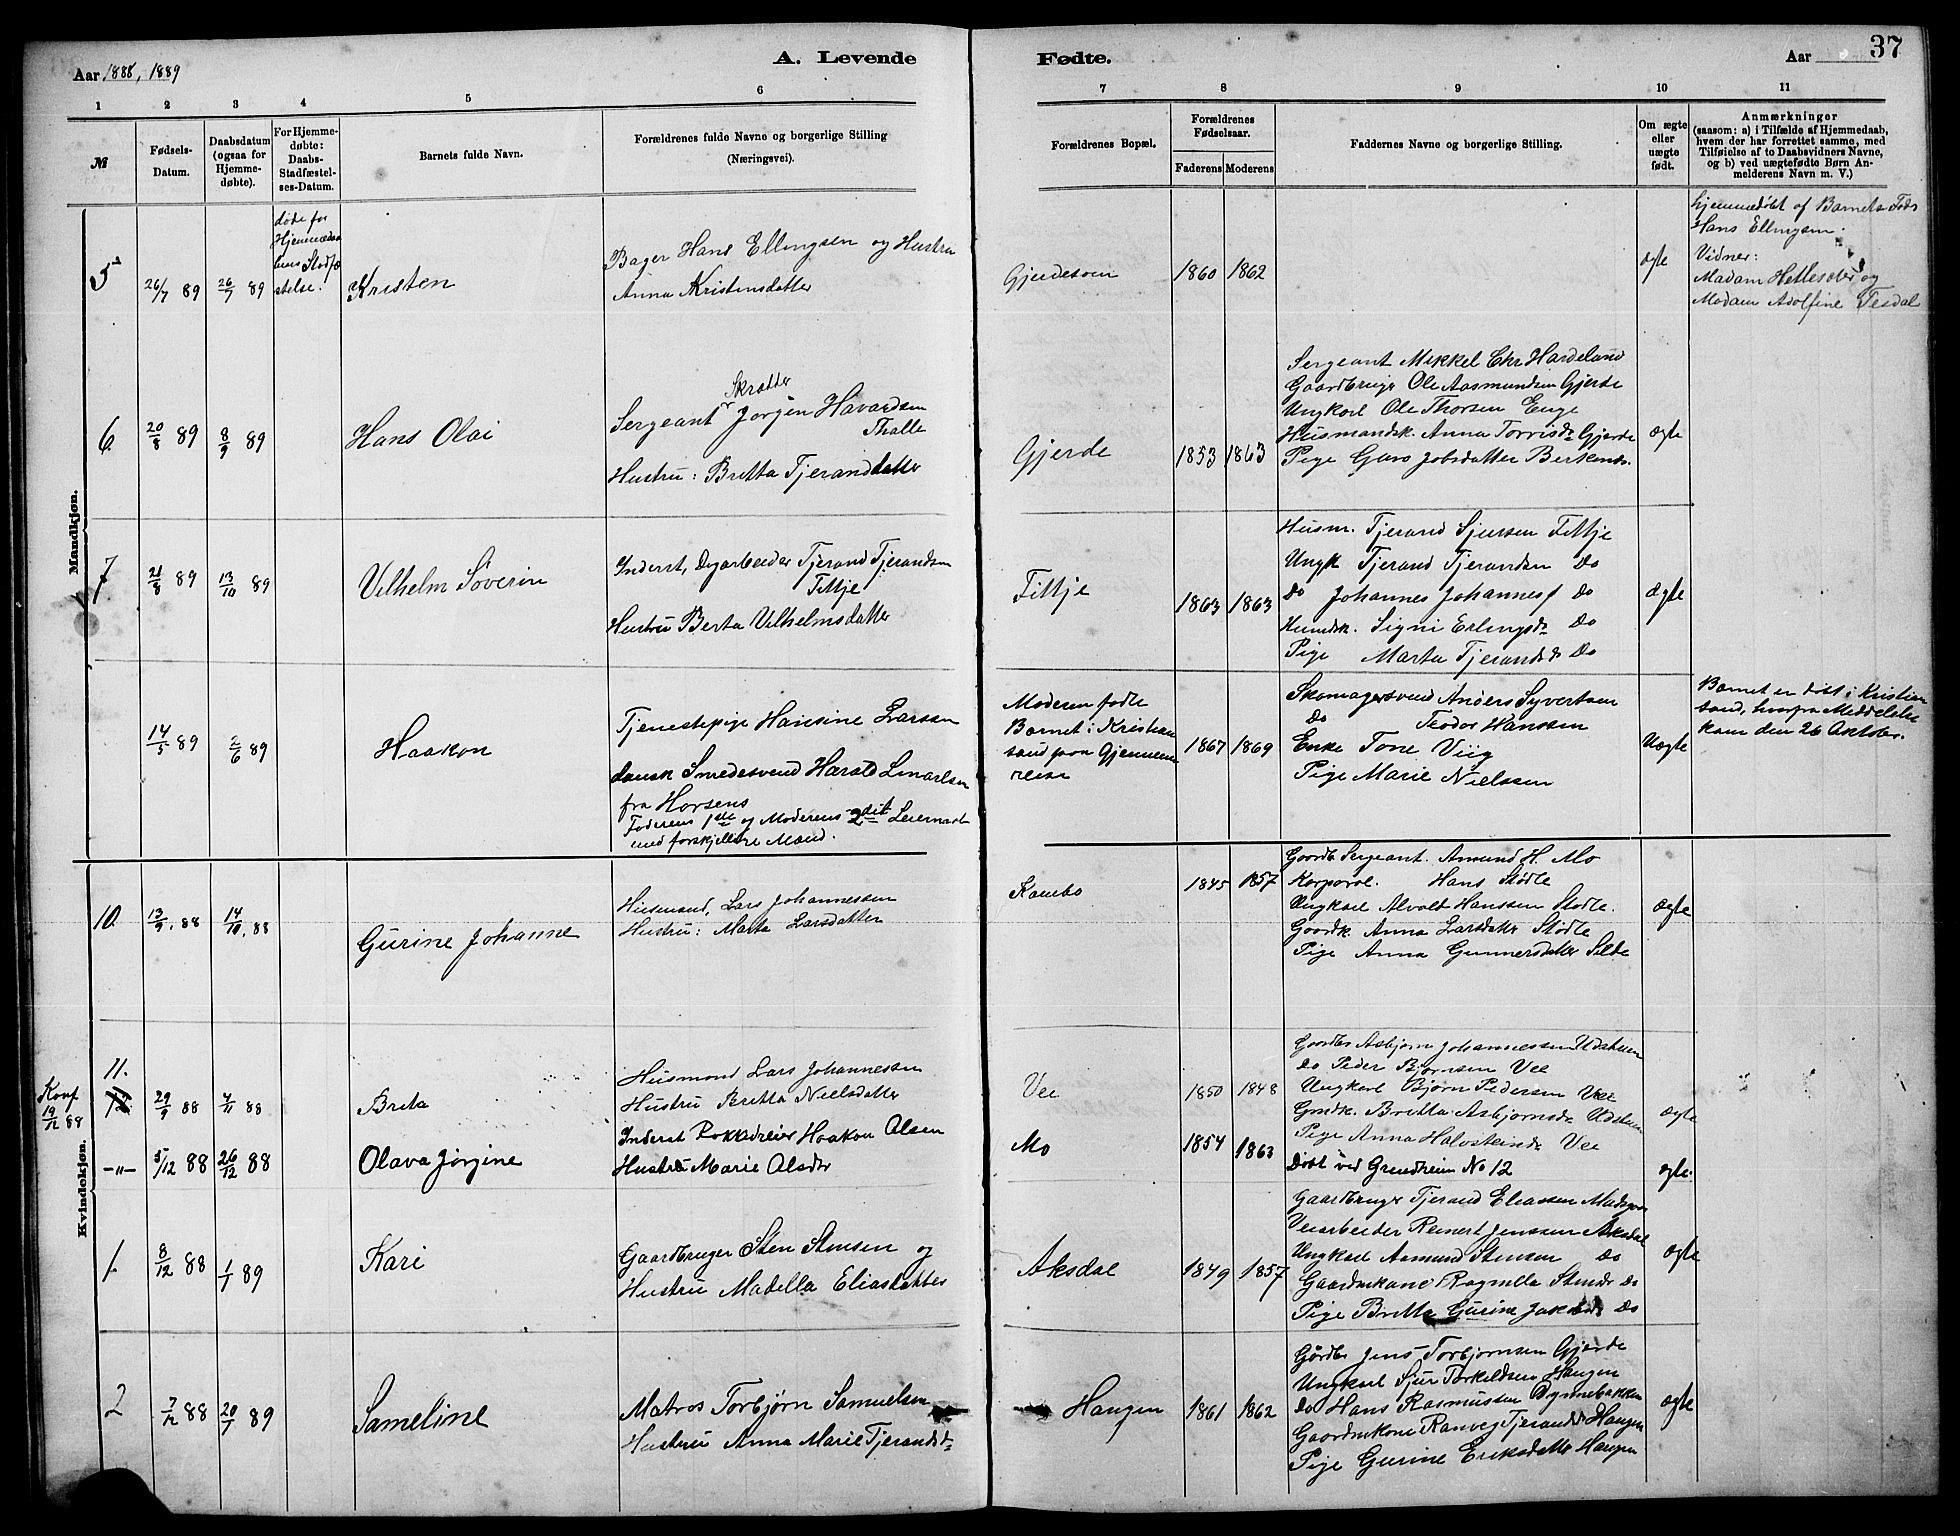 Aar 1888, 1889
A. Levende
Fødte.
Aar
37
1 2 3 4 5 6 7 8 9 10 11
№
Fødsels-
Datum.
Daabsdatum
(ogsaa for
Hjemme-
døbte).
For Hjemme-
døbte:
Daabs-
Stadfæstel-
ses-Datum.
Barnets fulde Navn.
Forældrenes fulde Navne og borgerlige Stilling
(Næringsvei).
Forældrenes Bopæl.
Forældrenes
Fødselsaar.
Faderens Moderens
Faddernes Navne og borgerlige Stilling.
Om ægte
eller
uægte
født.
Anmærkninger
(saasom: a) i Tilfælde af Hjemmedaab,
hvem der har forrettet samme, med
Tilføielse af to Daabsvidners Navne,
og b) ved uægtefødte Børn An-
melderens Navn m. V.)
Mandkjøn.
5
26/7 89
26/7 89
døde før
Hjemmedaa
bens Stadfæ
stelse.
Kristen
Bager Hans Ellingsen og Hustru
Anna Kristensdatter
Gjerdesoen
1860 1862
ægte
hjemmedøbt af Barnets Fader
Hans Ellingsen.
Vidner:
Madam og
Madam Adolfine Tesdal
6
20/8 89
8/9 89
Hans Olai
Skrædder
Sergeant Jørgen Havardsen
Thalle
Hustru: Britta Tjerandsdatter
Gjerde
1853 1863
Sergeant Mikkel Chr Hardeland
Gaardbruger Ole Aasmundsen Gjerde
Ungkarl Ole Thorsen Enge
Husmandsk. Anna Torrisdr Gjerde
Pige Guro Jobsdatter
ægte
7
21/8 89
13/10 89
Vilhelm Søverin
Inderst, Dagarbeider Tjerand Tjerandsen
Fittje
Hustru Berta Vilhelmsdatter
Fittje
1863 1863
Husm. Tjerand Sjursen Fittje
Ungk Tjerand Tjerandsen Do
Do Johannes Johannesf Do
Husmdsk. Signi Erlingsdr Do
Pige Marta Tjerandsdr Do
Ægte
14/5 89
2/6 89
Haakon
Tjenestepige Hansine Larsen
dansk Smedesvend Harald
fra Horsens
Faderens 1ste og Moderens 2det Leiermaal
med forskjellige Mænd.
Moderen fødte
Barnet i Kristian
sand paa Gjennem
reise
1867 1869
Skomagersvend Anders Syvertsen
Do Teodor Hanssen
Enke Tone Viig
Pige Marie Nielssen
Uægte
Barnet er døbt i Kristian
sand, hvorfra Meddelelse
kom den 26 Oktober.
Kvindekjøn.
10.
13/9. 88
14/10. 88
Gurine Johanne
Husmand, Lars Johannessen
Hustru: Marta Larsdatter
1845 1857
Gaardb. Sergeant. Amund H. Mo
Korporal. Hans Stødle
Ungkarl Alvald Hanssen Stødle.
Gaardk. Anna Larsdatter Stødle
Pige Anna Gunnersdatter Silde
ægte
Konf
19/12 88
11.
12
29/9 88
4/11 88
Brita
Husmand Lars Johannessen
Hustru Britta Nielsdatter
Vee
1850 1848
Gaardbr Asbjørn Johannessen Udstuen
Do Peder Bjørnsen Vee
Ungkarl Bjørn Pedersen Vee
Gmdk. Britta Asbjørnsdr Udstuen
Pige Anna Halvsteinsdr Vee
ægte
-"-
5/12 88
26/12 88
Olava Jørgine
Inderst Rokkdreier Haakon Olsen
Hustru Marie Olsdr
Mo
1854 1863
Døbt ved Grindheim No 12
ægte.
1.
8/12 88
1/1 89
Kari
Gaardbruger Sten Stensen og
Hustru Madella Eliasdatter
Aksdal
1849 1857
Gaardbruger Tjerand Eliassen
Veiarbeider Reinert Jenssen Aksdal
Ungkarl Aamund Stensen Do
Gaardmkone Ragnella Stensdr Do
Pige Britta Gurine Do
ægte
2
7/12 88
20/1 89
Sameline
Matros Torbjørn Samuelsen
Hustru Anna Marie Tjerandsdr
Haugen
1861 1862
Gårdbr Jens Torbjørnsen Gjerde
Ungkarl Sjur Torkeldsen Haugen
do Hans Rasmussen
Gaardmkone Ranveg Tjerandsdr Haugen
Pige Gurine Eriksdatter Haugen
ægte